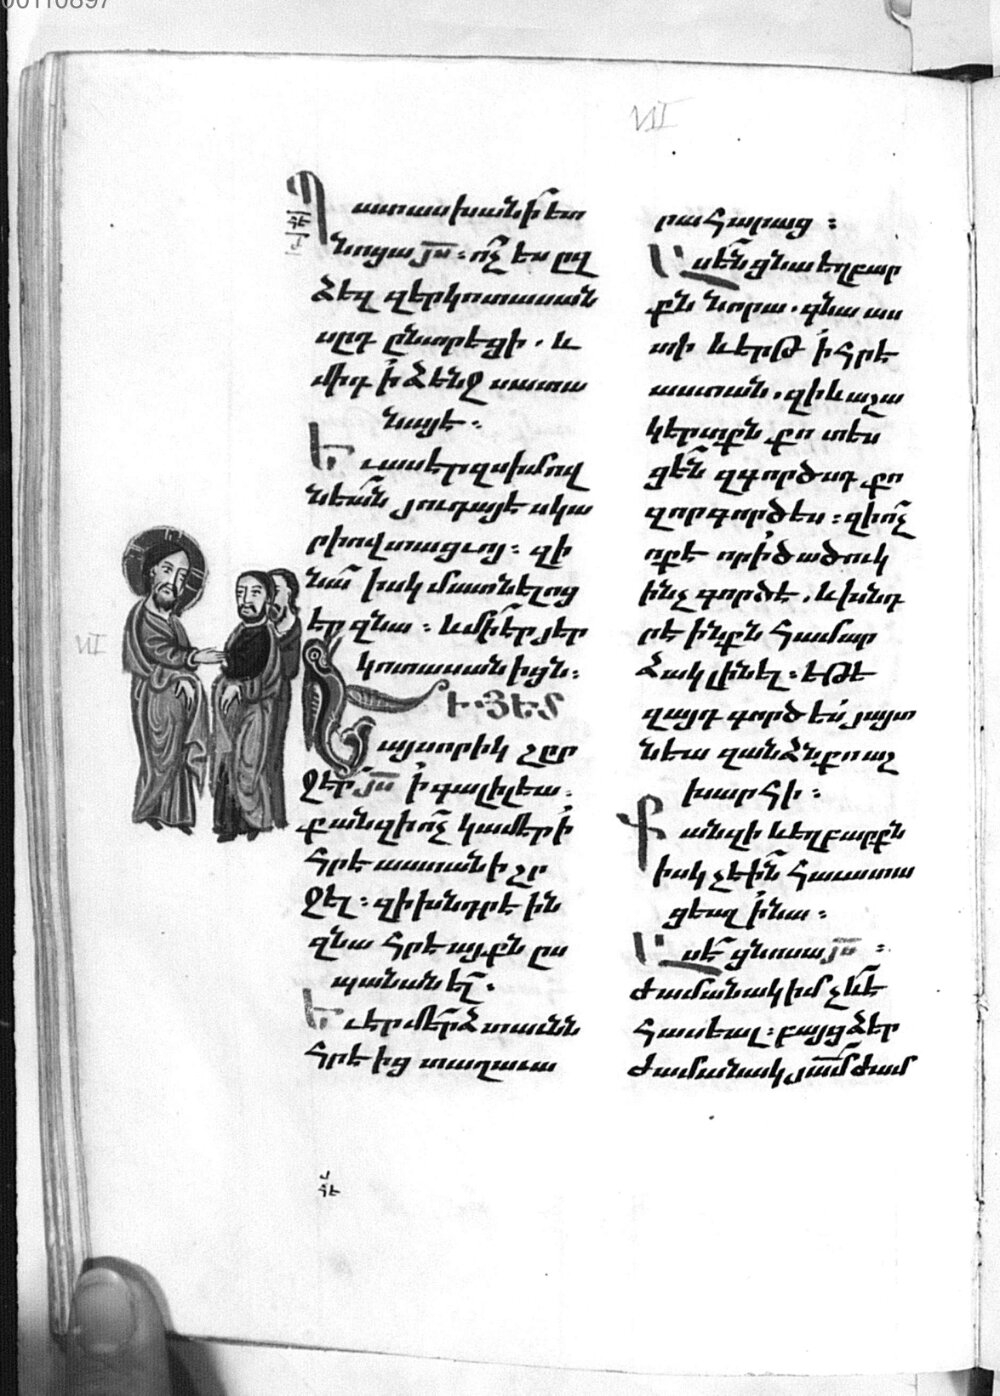 00110897
VII
Պատասխանի ետ
նոցա յս։ ո՞չ ես ըզ
ձեզ զերկոտասան
սըդ ընտրեցի. և
միդ ի ձենջ սատա
նայէ։
Եւ ասէր զսիմով
նեան յուդայէ սկա
րիովտացւոյ։ զի
նա իսկ մատնելոց
էր զնա։ և մի էր յեր
կոտասանիցն։
Եւ ՅԵՏ
այսորիկ շըր
ջէր յս ի գալիլեա.
քանզի ոչ կամէր ի
հրէաստանի շը
ջել։ զի խնդրէին
զնա հրէայքն ըս
պանանել.
Եւ էր մերձ տաւնն
հրէից տաղաւա
րահարաց։
Ասեն ցնա եղբար
քն նորա. գնա աս
տի և երթ ի հրէ
աստան. զի և աշա
կերտքն քո տես
ցեն զգործսդ քո
զոր գործես։ զի ոչ
ոք է որ ի ծածուկ
ինչ գործէ. և խնդ
րէ ինքն համար
ձակ լինել։ եթէ
զայդ գործես յայտ
նեա զանձն քո աշ
խարհի։
Քանզի և եղբարքն
իսկ չէին հաւատա
ցեալ ի նա։
Ասէ ցնոսա յս։
ժամանակ իմ չև է
հասեալ։ բայց ձեր
ժամանակ յամ ժամ
VII